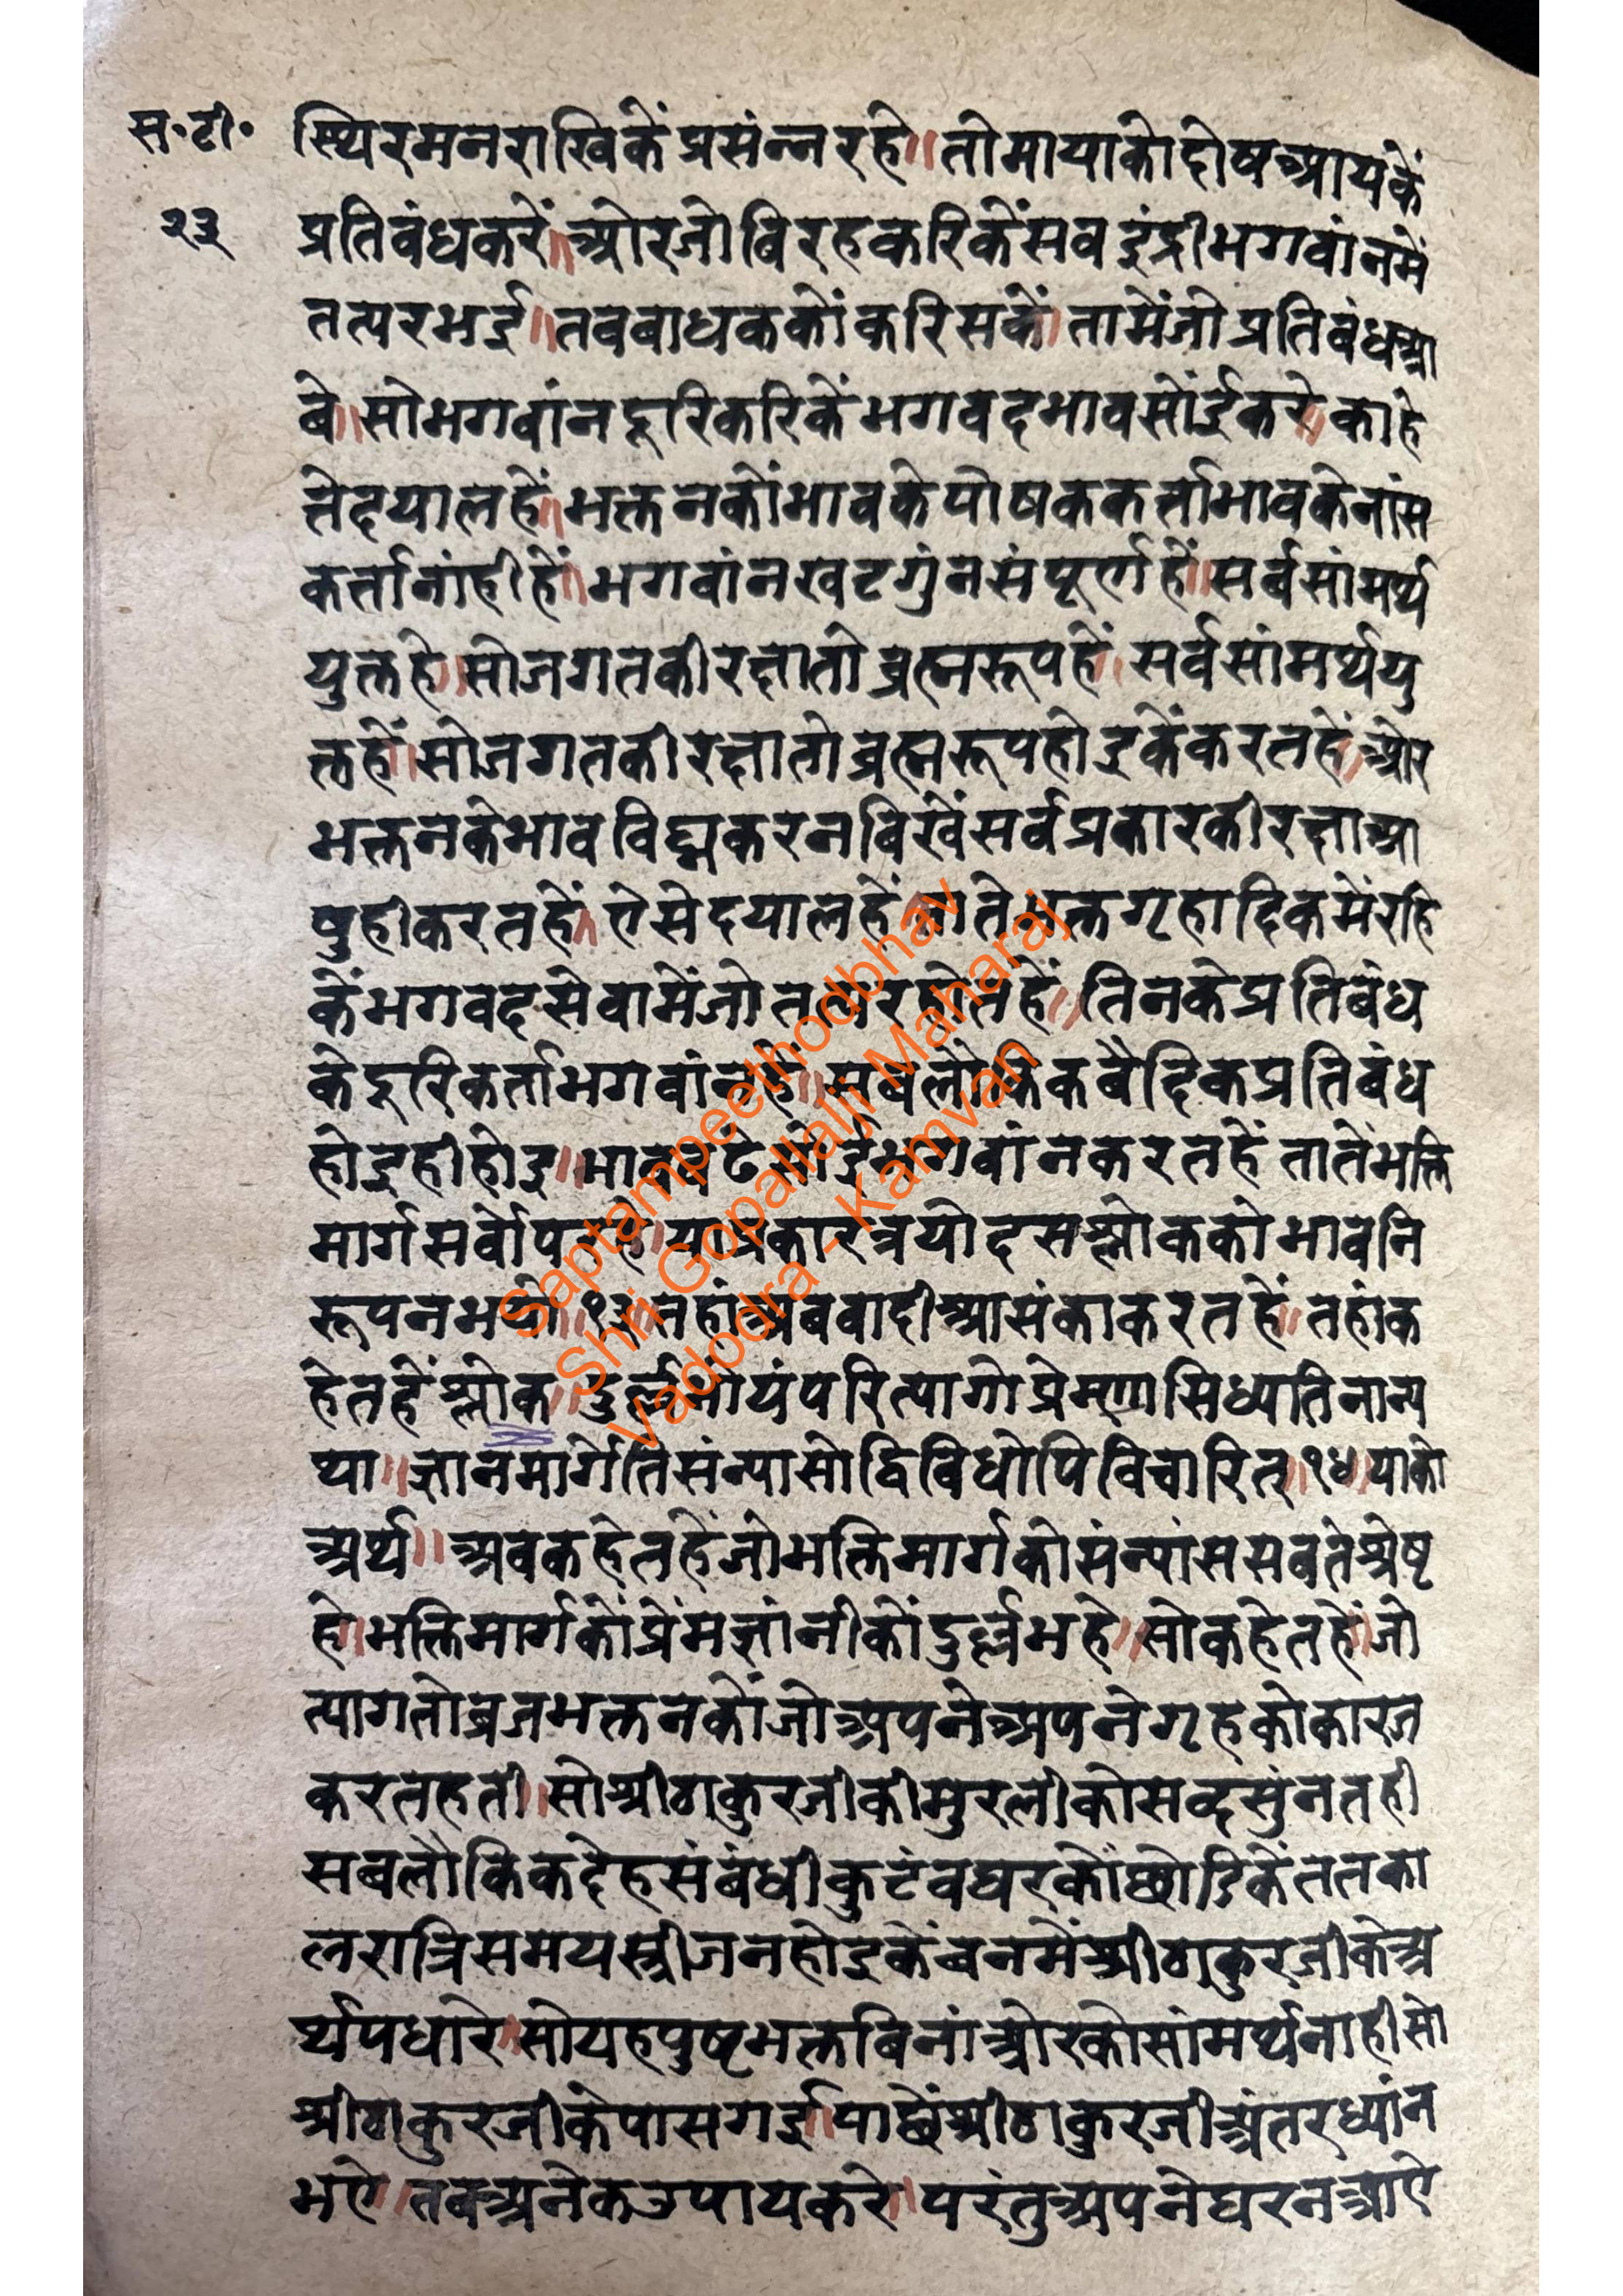 स॰टी॰
२३
स्थिरमनराखिकेंप्रसंन्नरहे॥तोमायाकोदोषआयकें
प्रतिबंधकरें॥ओरजोबिरहकरिकेंसबइंद्रीभगवांनमें
तत्परभई॥तबबाधककोंकरिसकें।तामेंजोप्रतिबंधआ
बे॥सोभगवांनदूरिकरिकेंभगवदभावसोंईकरे॥काहे
तेदयालहें॥भक्तनकोंभावकेपोषककर्त्ताभावकेनांस
कर्त्तानांहीहें॥भगवांनखटगुंनसंपूर्णहें॥सर्बसांमर्थ्य
युक्तहे॥सोजगतकीरक्षातोब्रह्मरूपहें॥सर्वसांमर्थ्ययु
क्तहें॥सोजगतकीरक्षातोब्रह्मरूपहोइकेंकरतहें॥ओर
भक्तनकेभावविघ्नकरनबिखेंसर्वप्रकारकीरक्षाआ
षुहीकरतहें॥ऐसेदयालहें॥तातेभक्तगृहादिकमेंरहि
केंभगवदसेवामेंजोतत्परहोतहें॥तिनकेप्रतिबंध
केदूरिकर्त्ताभगवांनहें॥सबलौकिकबैदिकप्रतिबंध
होइहीहोइ॥भावबढेसोईभगवांनकरतहेंतातेंभक्ति
मार्गसर्वोपरहे॥याप्रकारत्रयोदसश्लोककोभावनि
रूपनभयो॥१३॥तहांअबवादीआसंकाकरतहें॥तहांक
हेतहेंश्लोक॥दुर्ल्लभोयंपरित्यागोप्रेम्णासिध्यतिनान्य
था॥ज्ञानमार्गेतिसंन्यासोद्विविधोपिविचारित्॥१४॥याको
अर्थ॥अबकहेतहेंजोभक्तिमार्गकोसंन्यांससबतेश्रेष्ट
हे॥भक्तिमार्गकोंप्रेंमज्ञांनीकोंदुर्ल्लभहे॥सोकहेतहें॥जो
त्यागतोब्रजभक्तनकोंजोअपनेअपनेगृहकोकारज
करतहती॥सोश्रीठाकुरजीकीमुरलीकोसब्दसुंनतही
सबलौकिकदेहसंबंधीकुटंबघरकोंछोडिकेंततका
लरात्रिसमयस्त्रीजनहोइकेंबनमेंश्रीठाकुरजीकेअ
र्थ्यपधारे॥सोयहपुष्टभक्तबिनांओरकोसांमर्थ्यनाहीसो
श्रीठाकुरजीकेपासगई॥पाछेंश्रीठाकुरजीअंतरध्यांन
भऐ॥तबअनेकउपायकरे॥परंतुअपनेघरनआऐ
Saptampeethodbhav
Shri Gopallalji Maharaj
Vadodra - Kamvan